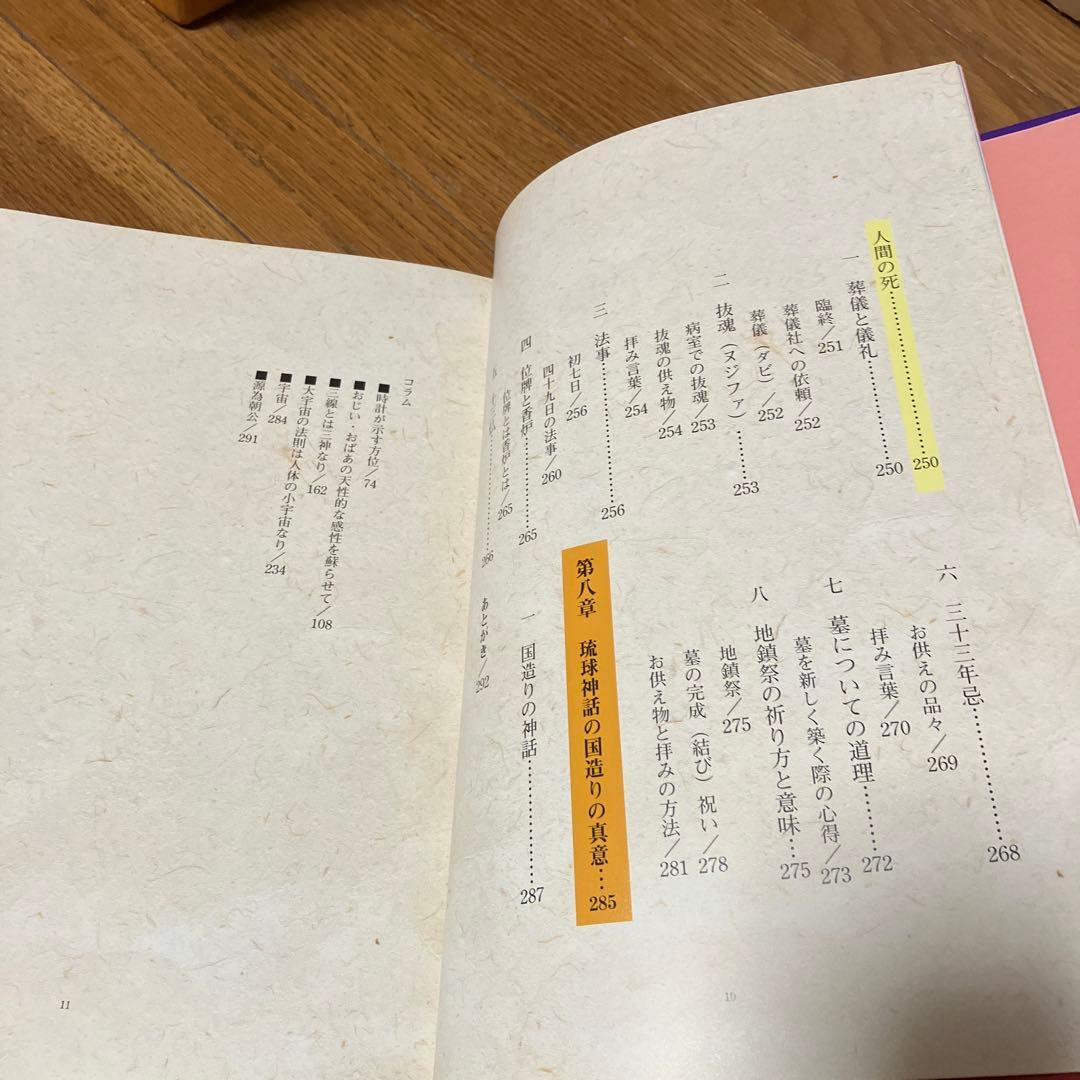 人間の死……………………250
一 葬儀と儀礼…………250
臨終／251
葬儀社への依頼／252
葬儀（ダビ）／252
二 抜魂（ヌジファ）……253
病室での抜魂／253
抜魂の供え物／254
拝み言葉／254
三 法事……………256
初七日／256
四十九日の法事／260
四 位牌と香炉…………265
位牌とは香炉とは／265
五 十三仏……………266
六 三十三年忌……………268
お供えの品々／269
拝み言葉／270
七 墓についての道理………272
墓を新しく築く際の心得／273
八 地鎮祭の祈り方と意味…275
地鎮祭／275
墓の完成（結び）祝い／278
お供え物と拝みの方法／281
第八章 琉球神話の国造りの真意…285
一 国造りの神話……………287
あとがき／292
10
コラム
■時計が示す方位／74
■おじい・おばあの天性的な感性を蘇らせて／108
■三線とは三神なり／162
■大宇宙の法則は人体の小宇宙なり／234
■宇宙／284
■源為朝公／291
11